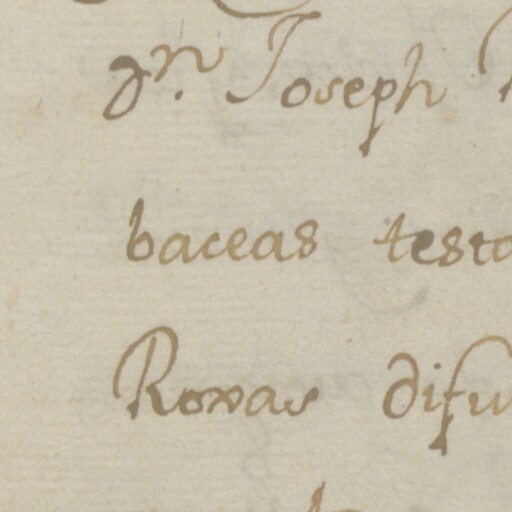 gn. Joseph
baceas testa
Roxas difu